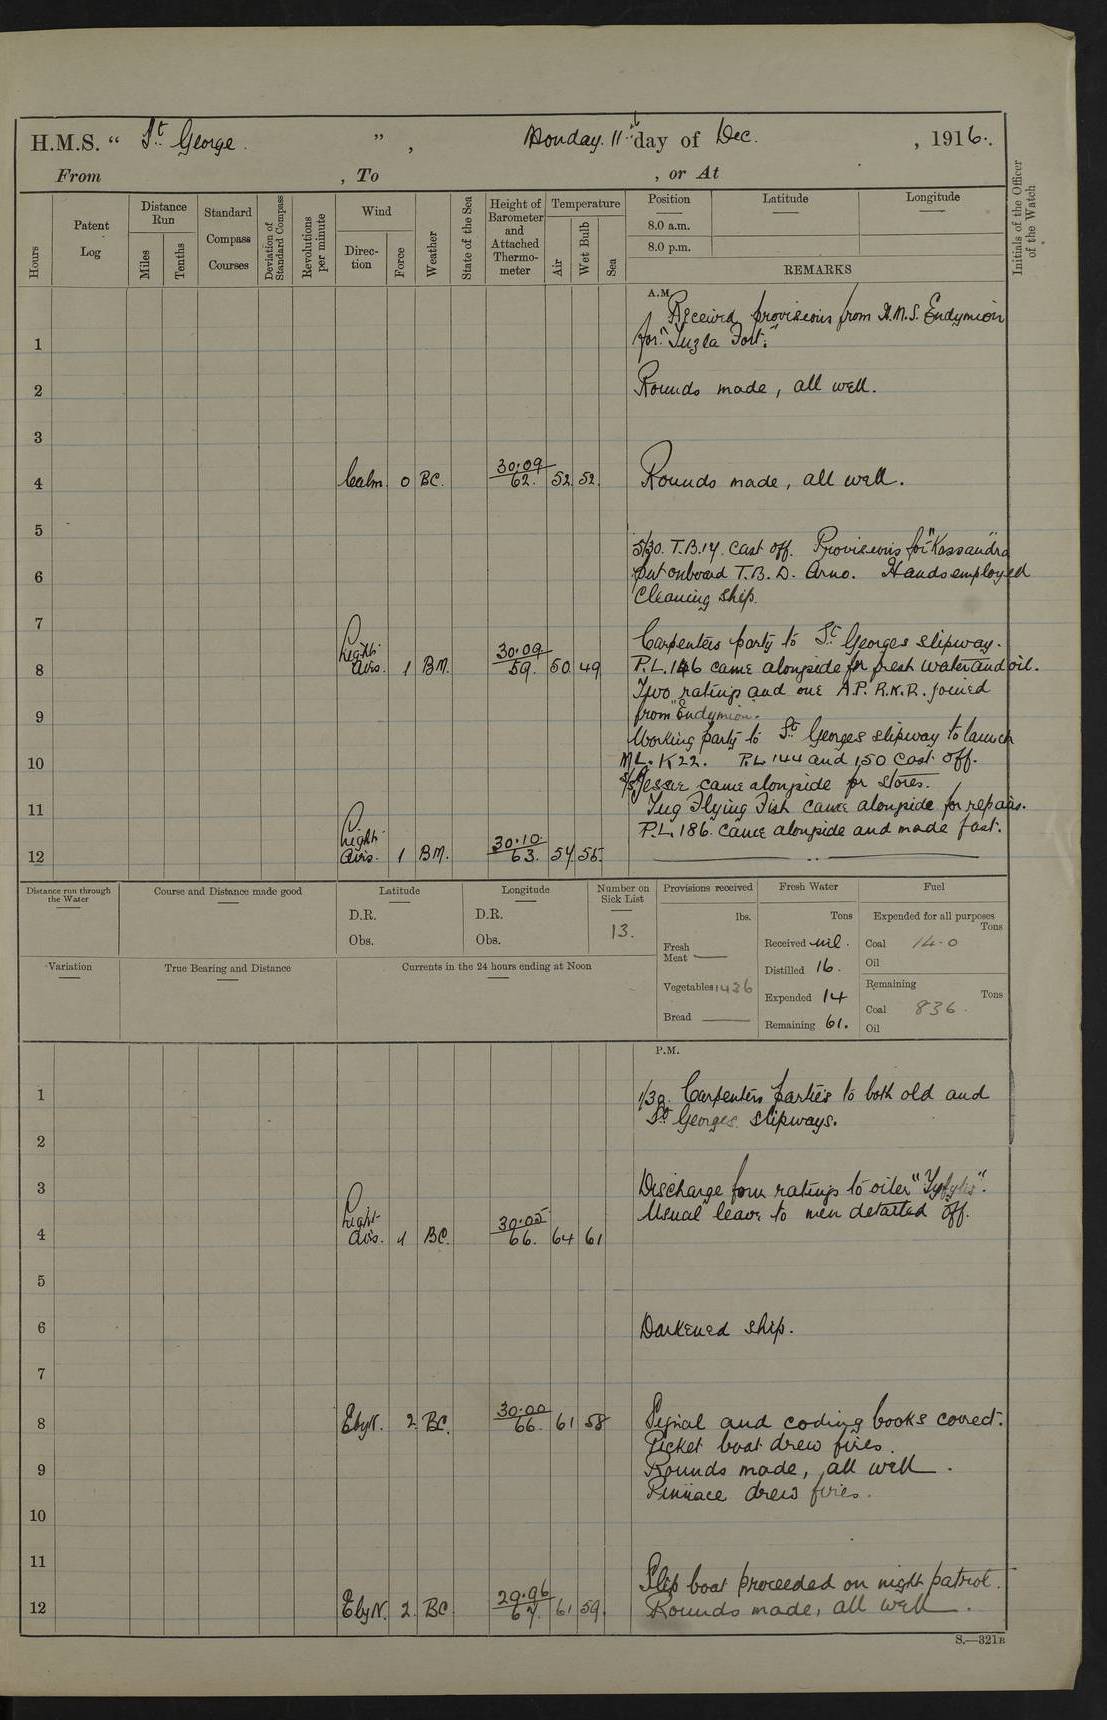 H.M.S. " St George. ", Monday. 11th day of Dec. , 1916.
From , To , or At
Hours
Patent Log
Distance Run
Miles
Tenths
Standard Compass Courses
Deviation of Standard Compass
Revolutions per minute
Wind
Direction
Force
Weather
State of the Sea
Height of Barometer and Attached Thermometer
Temperature
Air
Wet Bulb
Sea
Position
8.0 a.m.
8.0 p.m.
Latitude
Longitude
REMARKS
Initials of the Officer of the Watch
A.M.
Received provisions from H.M.S. Endymion
1 for "Tuzla Fort."
2 Rounds made, all well.
3
4 Calm. 0 BC. 30.09 62. 52 52. Rounds made, all well.
5
5/30. T.B.17. cast off. Provisions for "Kassandra
6 put onboard T.B.D. Arno. Hands employed
Cleaning ship.
7
Carpenters party to St Georges slipway.
8 Light airs. 1 BM. 30.09 59. 50 49 P.L.146 came alongside for fresh water and oil.
Two ratings and one A.P. R.N.R. joined
9 from "Endymion.
Working party to St Georges slipway to launch
10 ML. K22. P.L. 144 and 150 cast off.
S/S Jessie came alongside for stores.
11 Tug Flying Fish came alongside for repairs.
P.L. 186. came alongside and made fast.
12 Light airs. 1 BM. 30.10 63. 57 55.
Distance run through the Water
Course and Distance made good
Latitude
D.R.
Obs.
Longitude
D.R.
Obs.
Number on Sick List
13.
Provisions received
lbs.
Fresh Meat —
Vegetables 1436
Bread —
Fresh Water
Tons
Received nil.
Distilled 16.
Expended 14
Remaining 61.
Fuel
Expended for all purposes
Tons
Coal 14.0
Oil
Remaining
Tons
Coal 836.
Oil
Variation
True Bearing and Distance
Currents in the 24 hours ending at Noon
P.M.
1 1/30. Carpenters parties to both old and
St Georges slipways.
2
3 Discharge four ratings to oiler
Usual leave to men detailed off.
4 Light airs. 1 BC. 30.05 66. 64 61
5
6 Darkened ship.
7
8 EbyN. 2 BC. 30.00 66. 61 58 Signal and coding books correct.
Picket boat drew fires.
9 Rounds made, all well.
Pinnace drew fires.
10
11
Slip boat proceeded on night patrol.
12 EbyN. 2. BC 29.96 67. 61 59. Rounds made, all well.
S.—321B